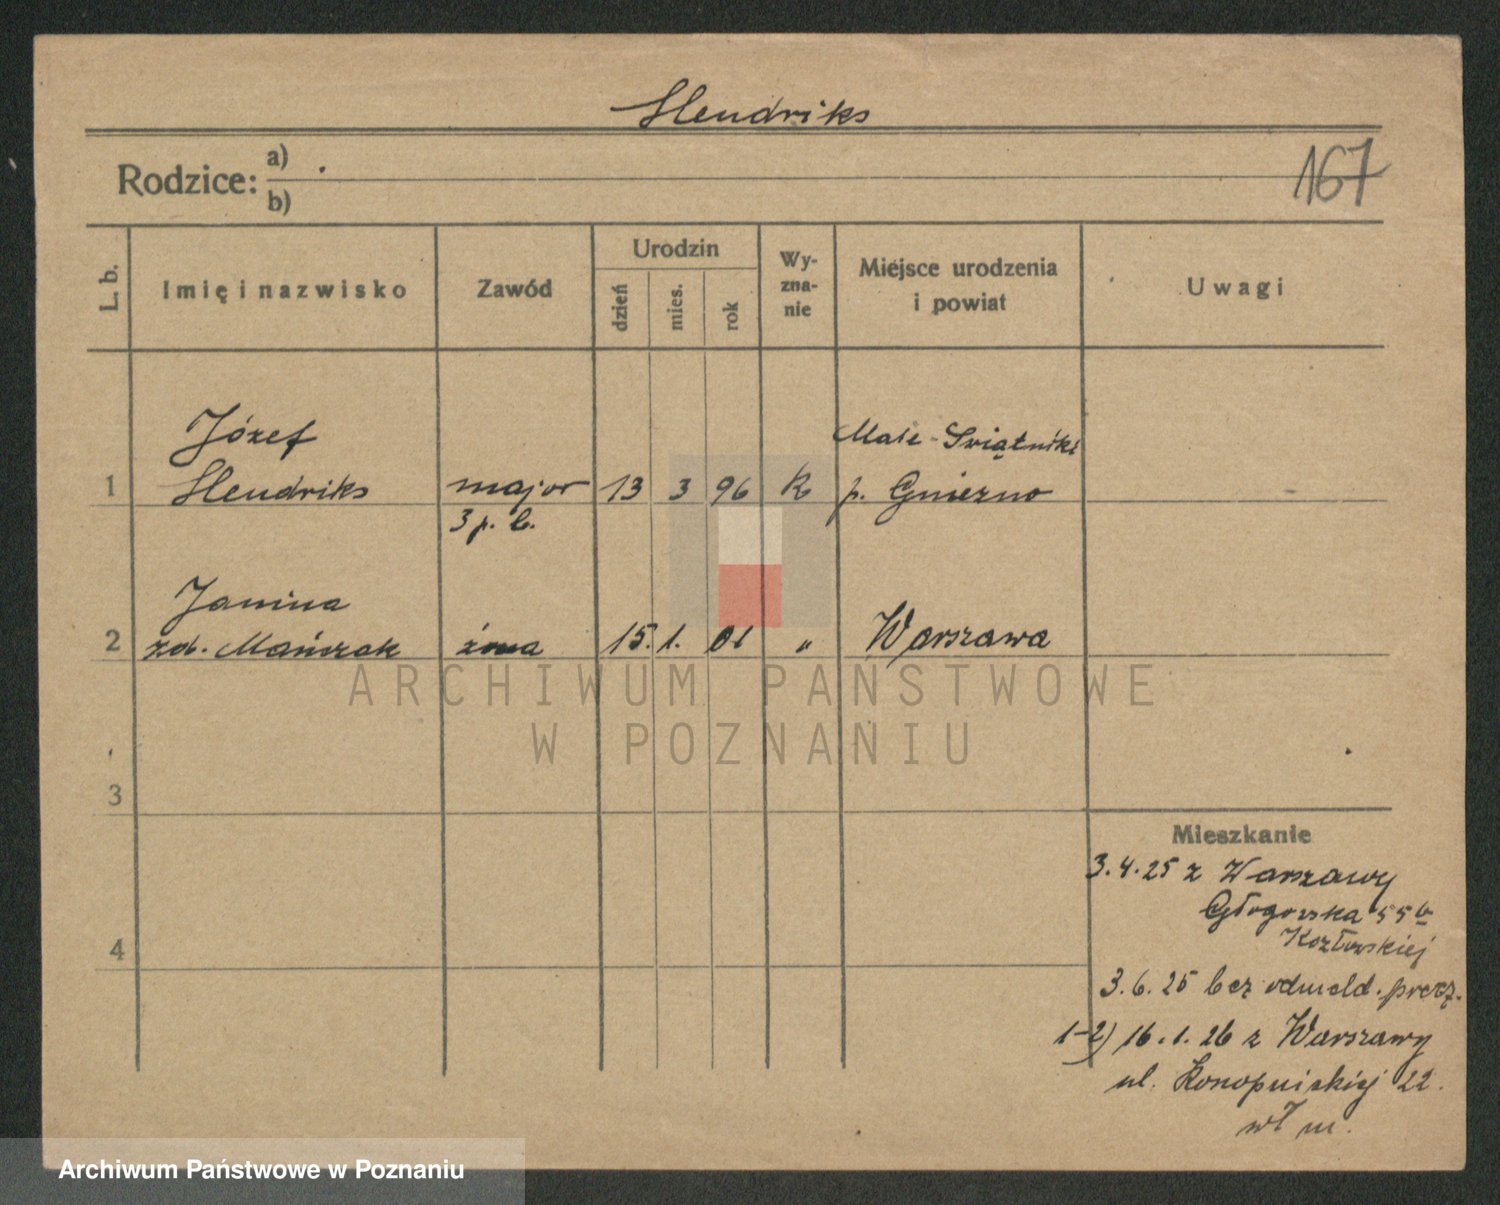 Hendriks
167
Rodzice: a)
b)
L. b.
Imię i nazwisko
Zawód
Urodzin
dzień
mies.
rok
Wy-
zna-
nie
Miejsce urodzenia
i powiat
Uwagi
1
Józef
Hendriks
major
3 p. l.
13
3
96
k
Małe-Świątniki
p. Gniezno
2
Janina
zd. Mańczak
żona
15.
1.
01
"
Warszawa
3
4
Mieszkanie
3.4.25 z Warszawy
Głogowska 55b
Kozłowskiej
3.6.25 bez odmeld.
1-2) 16.1.26 z Warszawy
ul. Konopnickiej 22.
wł m.
ARCHIWUM PAŃSTWOWE
W POZNANIU
Archiwum Państwowe w Poznaniu